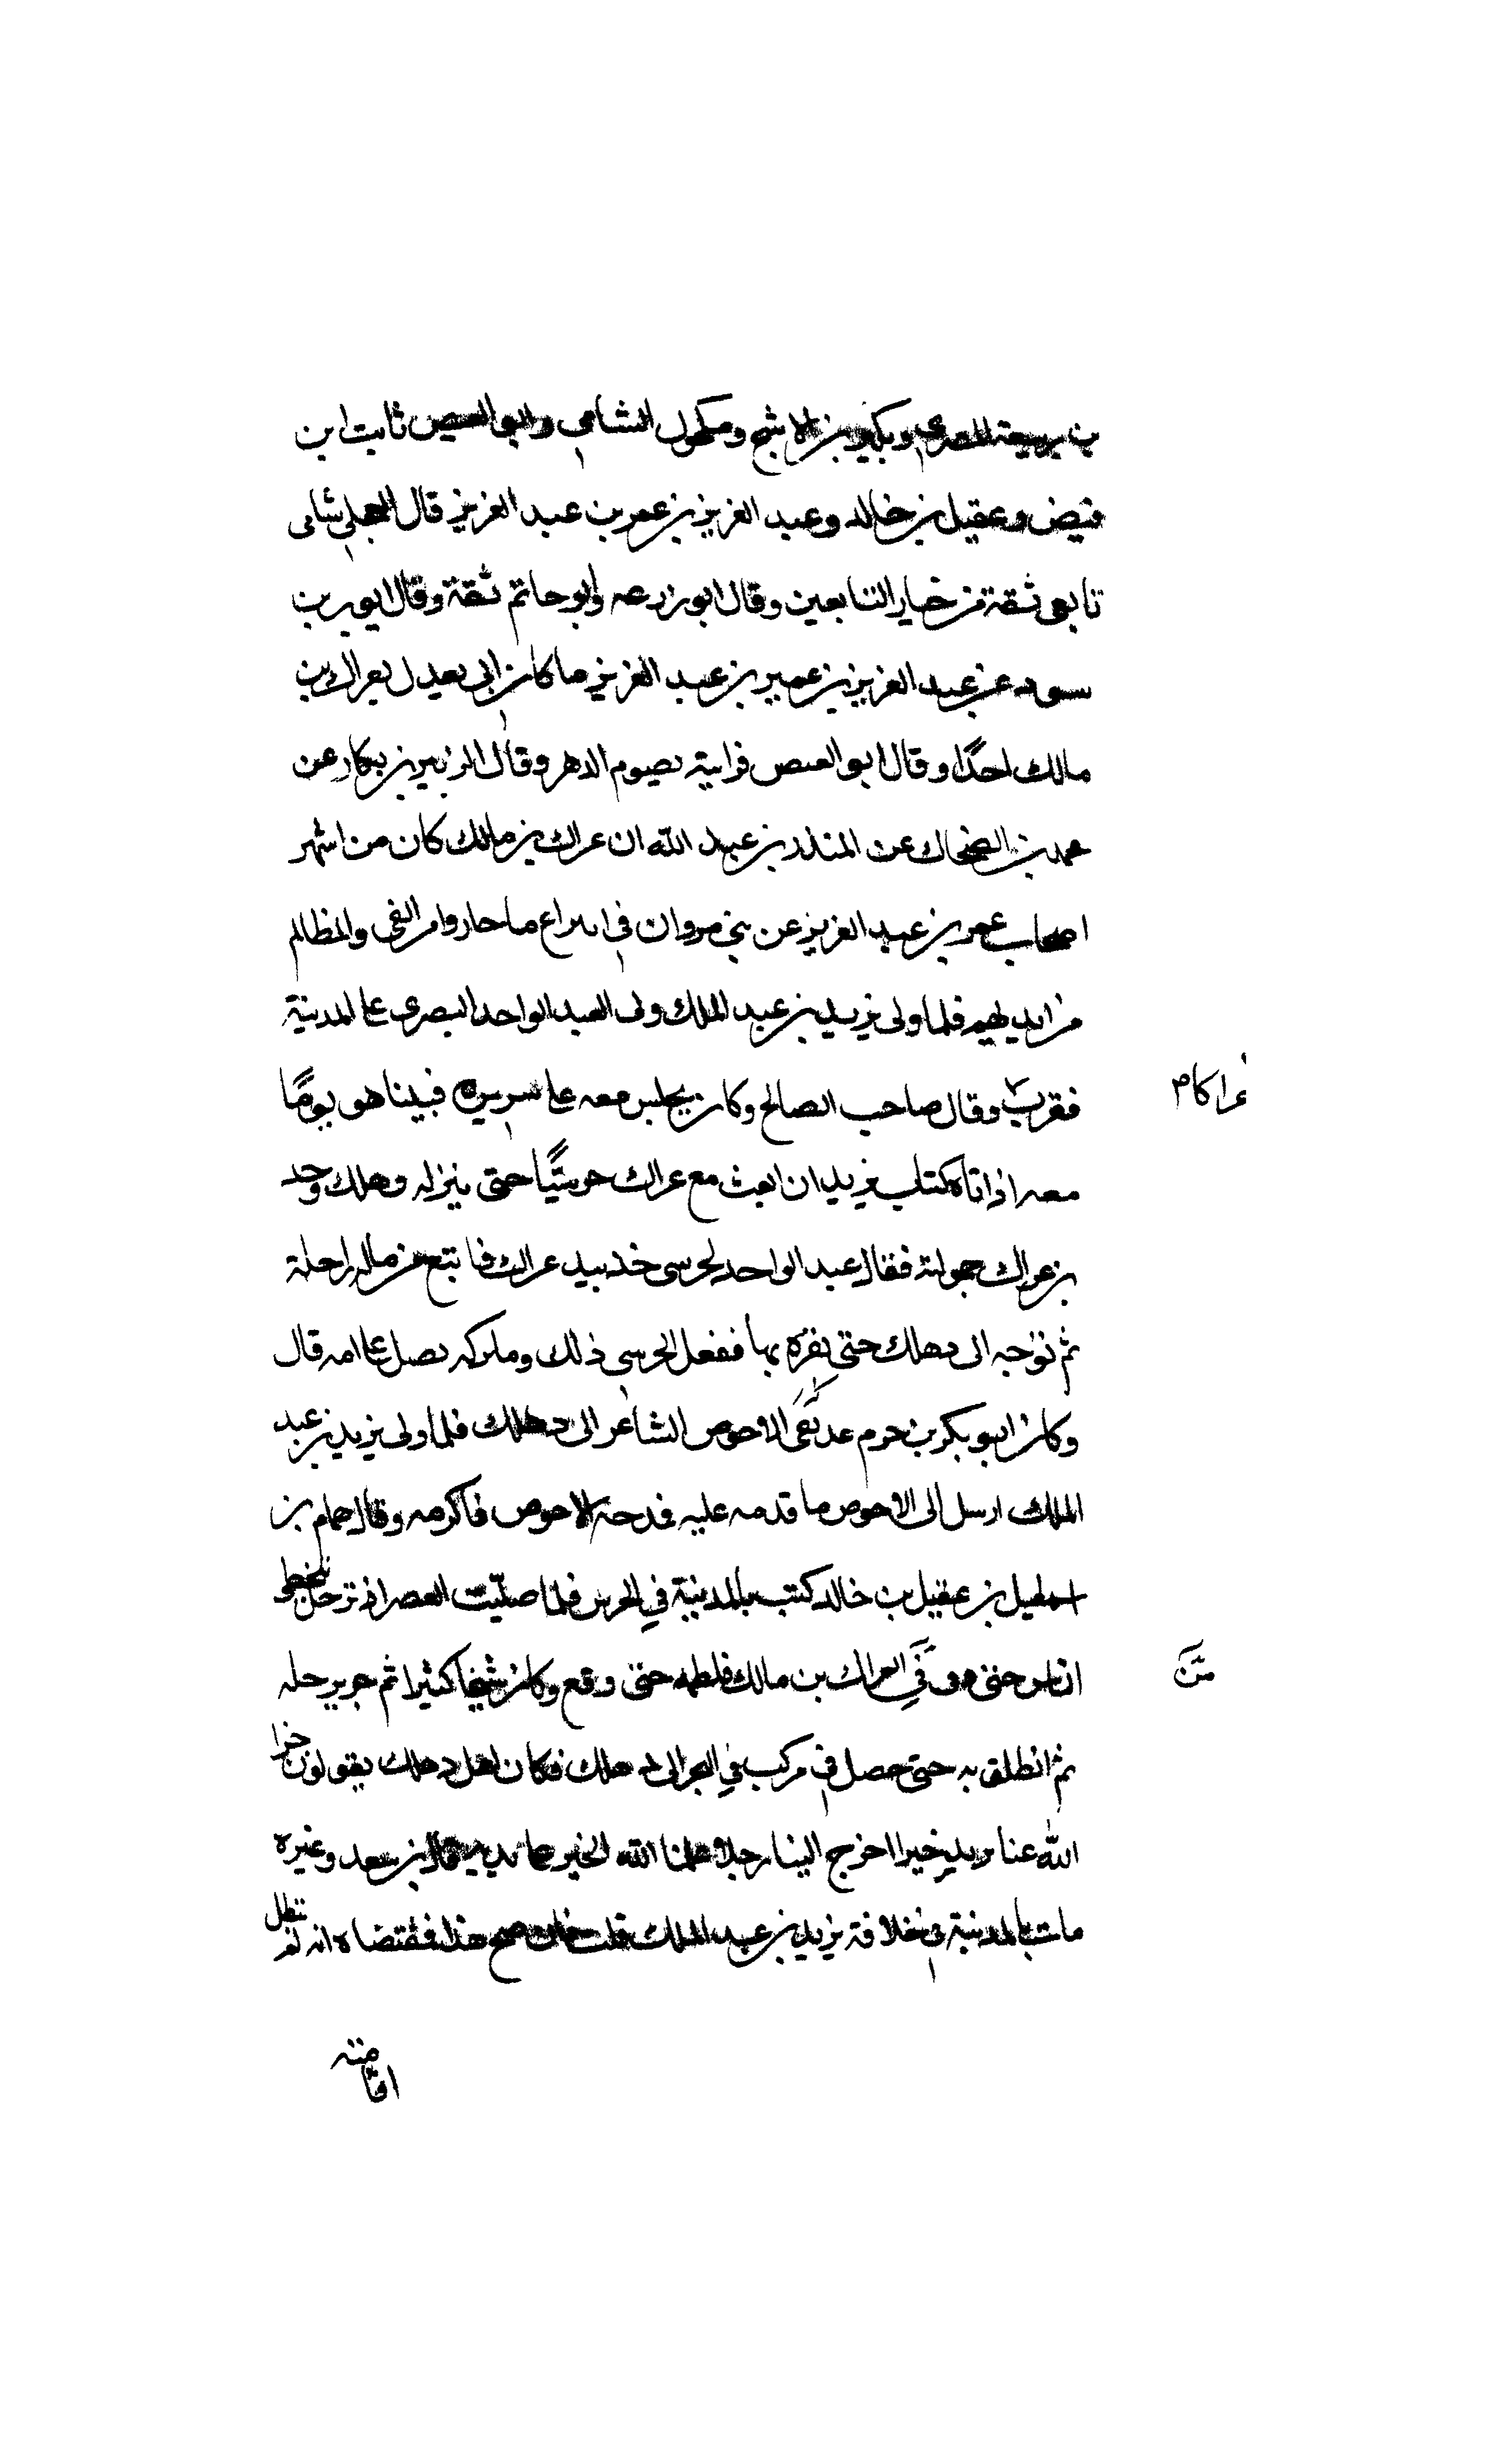 بن ربيعة المصرى وبكير بن الاشج ومكحول الشامى وابو العيص ثابت ابن
فيض وعقيل بن خالد وعبد العزيز بن عمر بن عبد العزيز قال العجلى شامى
تابعى ثقة من خيار التابعين وقال ابو زرعه وابو حاتم ثقة وقال ايوب بن
سويد عن عبد العزيز بن عمر بن عبد العزيز ما كان ابى يعدل بعراك بن
مالك احدًا وقال ابو العيص فراييه يصوم الدهر وقال الزبير بن بكار عن
محمد بن الضحاك عن المنذر بن عبد الله ان عراك بن مالك كان من اشهر
اصحاب عمر بن عبد العزيز عن بنى مروان فى انتزاع ما حازوا من الفى والمظالم
من ايديهم فلما ولى يزيد بن عبد الملك ولى العبد الواحد البصرى على المدينة
فقرب وقال صاحب الصالح وكان يجلس معه على سريره فبينا هو يومًا
معه اذ اتاه كتاب يزيد ان ابعث مع عراك حرسيًا حتى ينزله دهلك وخد
من عراك حمولته فقال عبد الواحد لحرسى خذ بيد عراك فابتع من ماله راحلة
ثم توجه الى دهلك حتى يقره بها ففعل الحرسى ذلك وما تركه يصل على امه قال
وكان ابو بكر بن حزم نفى الاحوص الشاعر الى دهلك فلما ولى يزيد بن عبد
الملك ارسل الى الاحوص ما قدمه عليه فمدحه الاحوص فاكرمه وقال
بن عقيل بن خالد كنت بالمدينة فى الحرس فلما صليت العصر اذ برجل يتخطى
الناس حتى دنى العراك بن مالك فلطمه حتى وقع وكان شيخا كثيرا ثم جر برجله
ثم انطلق به حتى حصل فى مركب فى البحر الى دهلك فكان اهل دهلك يقولون جزا
الله عنا يزيد خيرا اخرج الينا رجلا علمنا الله الخير على يديه قال بن سعد وغيره
مات بالمدينة فى خلافة يزيد بن عبد الملك قلت فان صح هذا فمقتضاه انه لم تطل
اقامته